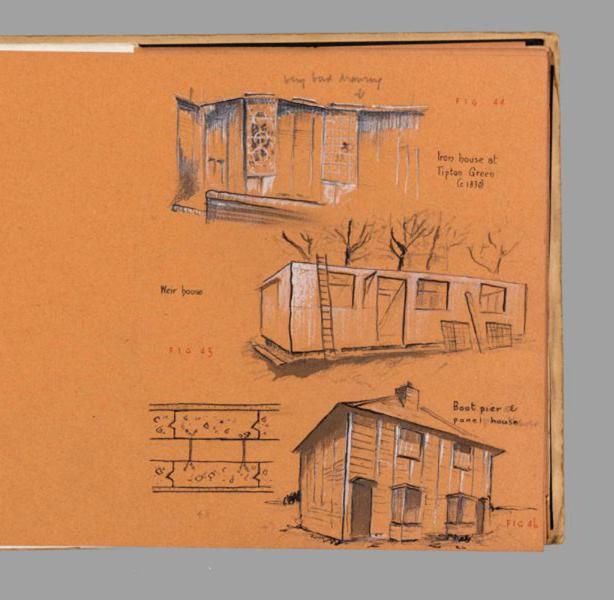 very bad drawing
FIG 44
Iron house at
Tipton Green
(c 1830)
Weir house
FIG 45
Boot pier &
panel house
FIG 46